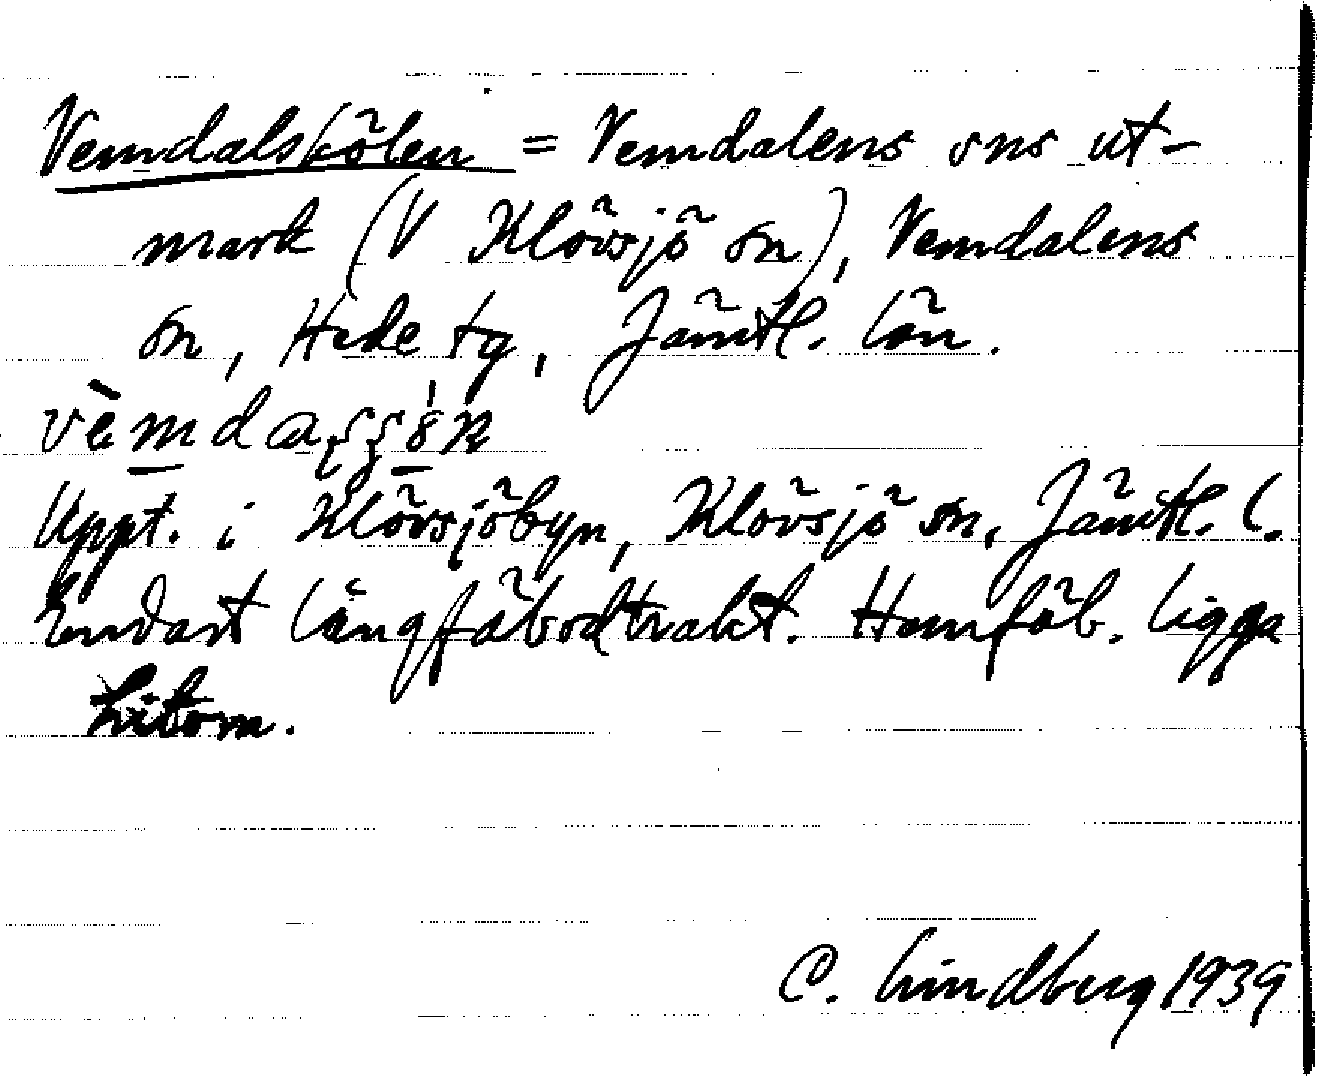 Vemdalskölen = Vemdalens sns ut-
mark (V Klövsjö sn), Vemdalens
sn, Hede tg, Jämtl. län.
Uppt. i Klövsjöbyn, Klövsjö sn, Jämtl. l.
Endast långfäbodtrakt. Hemfäb. ligga
hitom.
C. Lindberg 1939